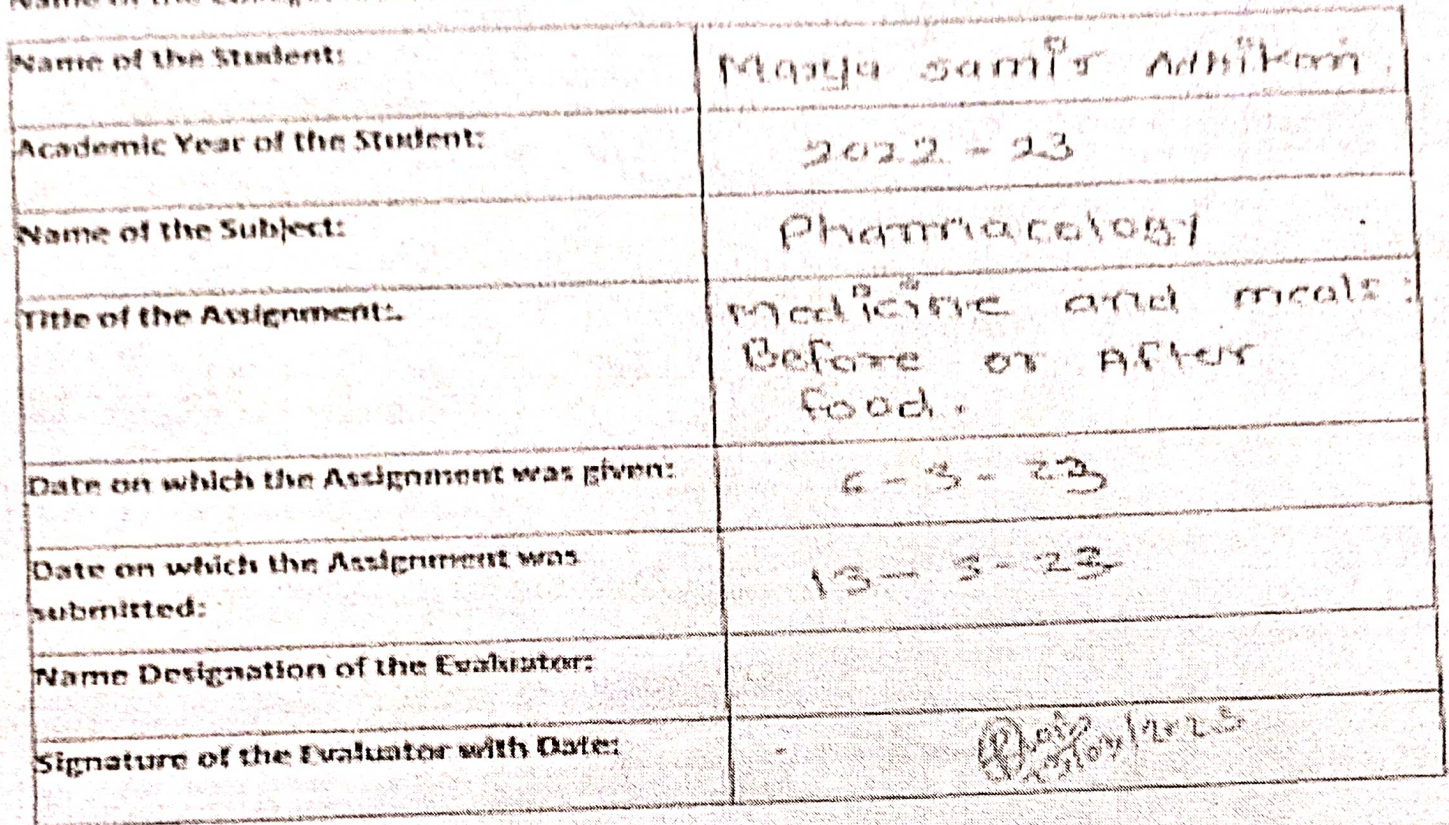 Name of the
Name of the Student: samir
Academic Year of the Student: 2022 - 23
Name of the Subject: Pharmacology
Title of the Assignment: Medicine and meals:
Before or After
food.
Date on which the Assignment was given: 6 - 3 - 23
Date on which the Assignment was 13 - 3 - 23
submitted:
Name Designation of the Evaluator:
Signature of the Evaluator with Date: